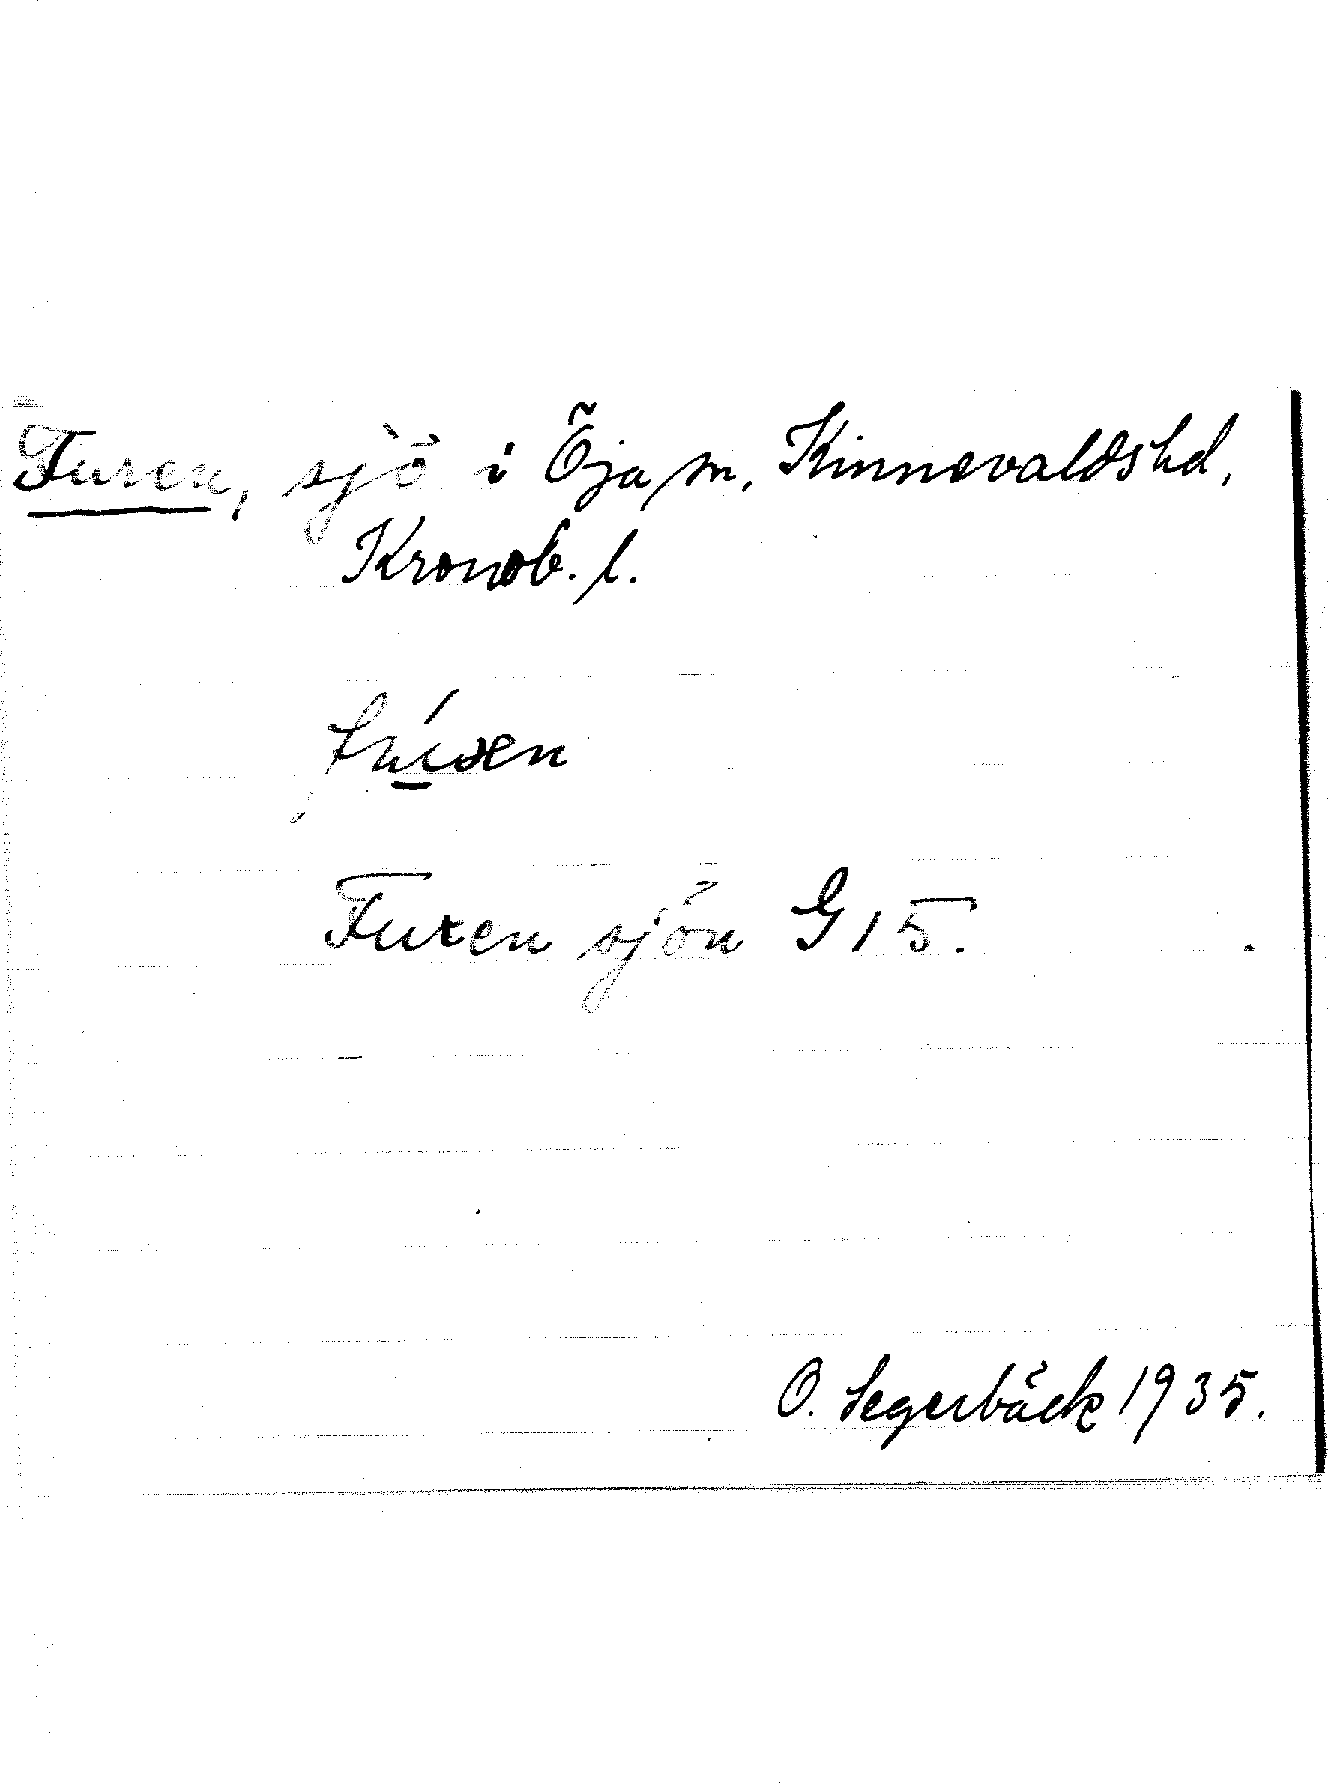 Furen, sjö i Öja sn, Kinnevalds hd,
Kronob. l.
Furen sjön G 15.
O. Segerbäck 1935.